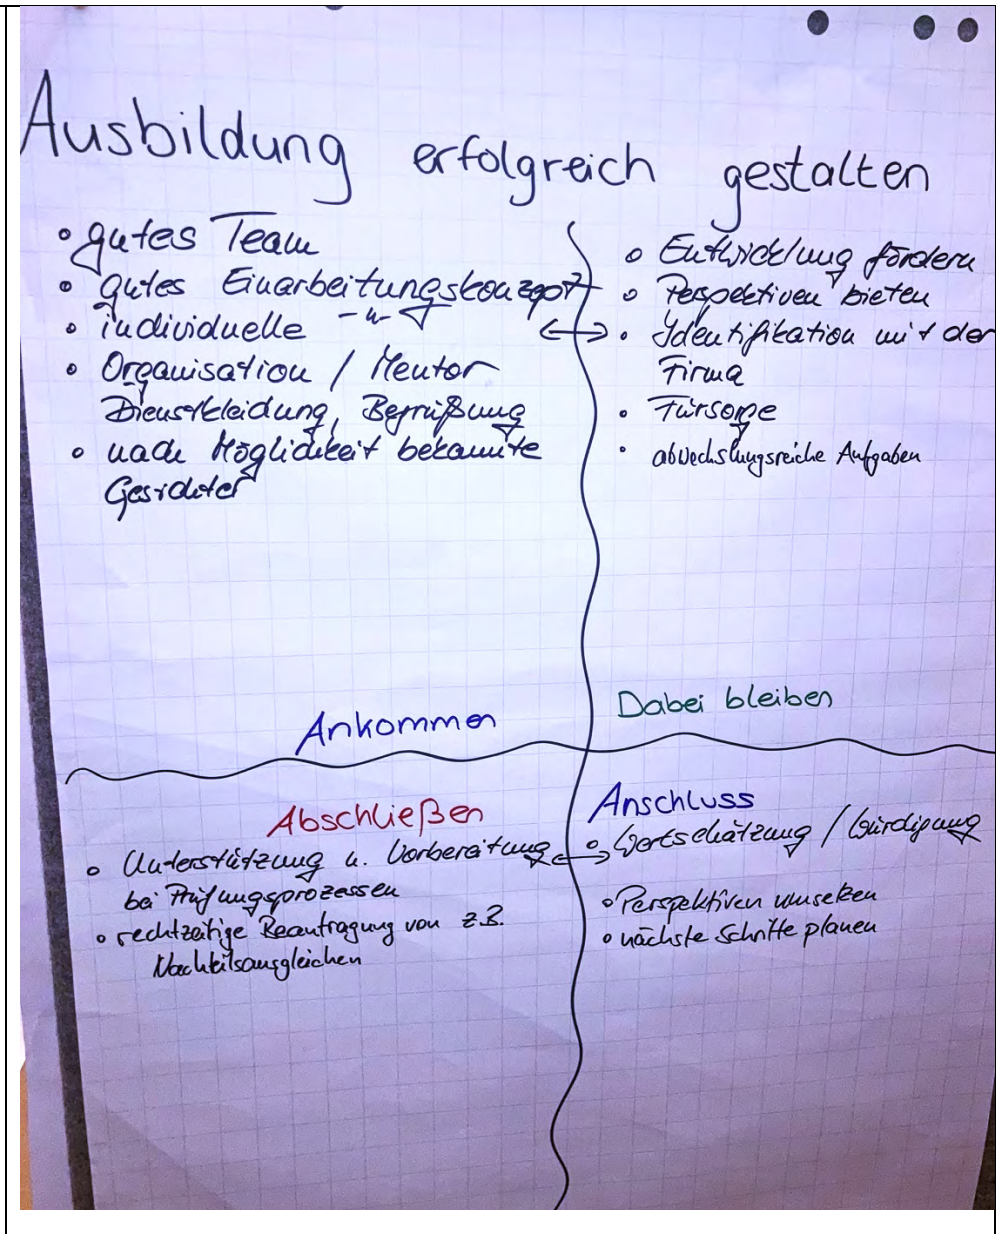 Ausbildung erfolgreich gestalten
• gutes Team
• gutes Einarbeitungskonzept
• individuelle -"-
• Organisation / Mentor
Dienstkleidung, Begrüßung
• nach Möglichkeit bekannte
Gesichter
Ankommen
• Entwicklung fördern
• Perspektiven bieten
• Identifikation mit der
Firma
• Fürsorge
• abwechslungsreiche Aufgaben
Dabei bleiben
Abschließen
• Unterstützung u. Vorbereitung
bei Prüfungsprozessen
• rechtzeitige Beantragung von z.B.
Nachteilsausgleichen
Anschluss
• Wertschätzung / Würdigung
• Perspektiven umsetzen
• nächste Schritte planen